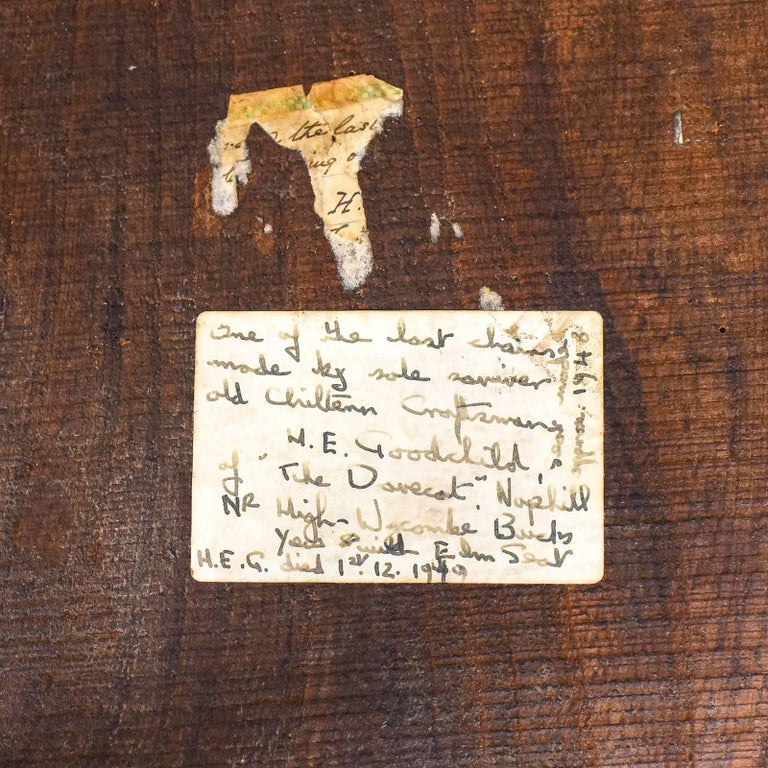 the last
ing o
H.
One of the last chairs
made by sole
old Chiltern Craftsman
H. E. Goodchild,
of "The Dovecot", Naphill
NR High-Wycombe Bucks
Yew with Elm Seat
H.E.G. died 1st. 12. 1949